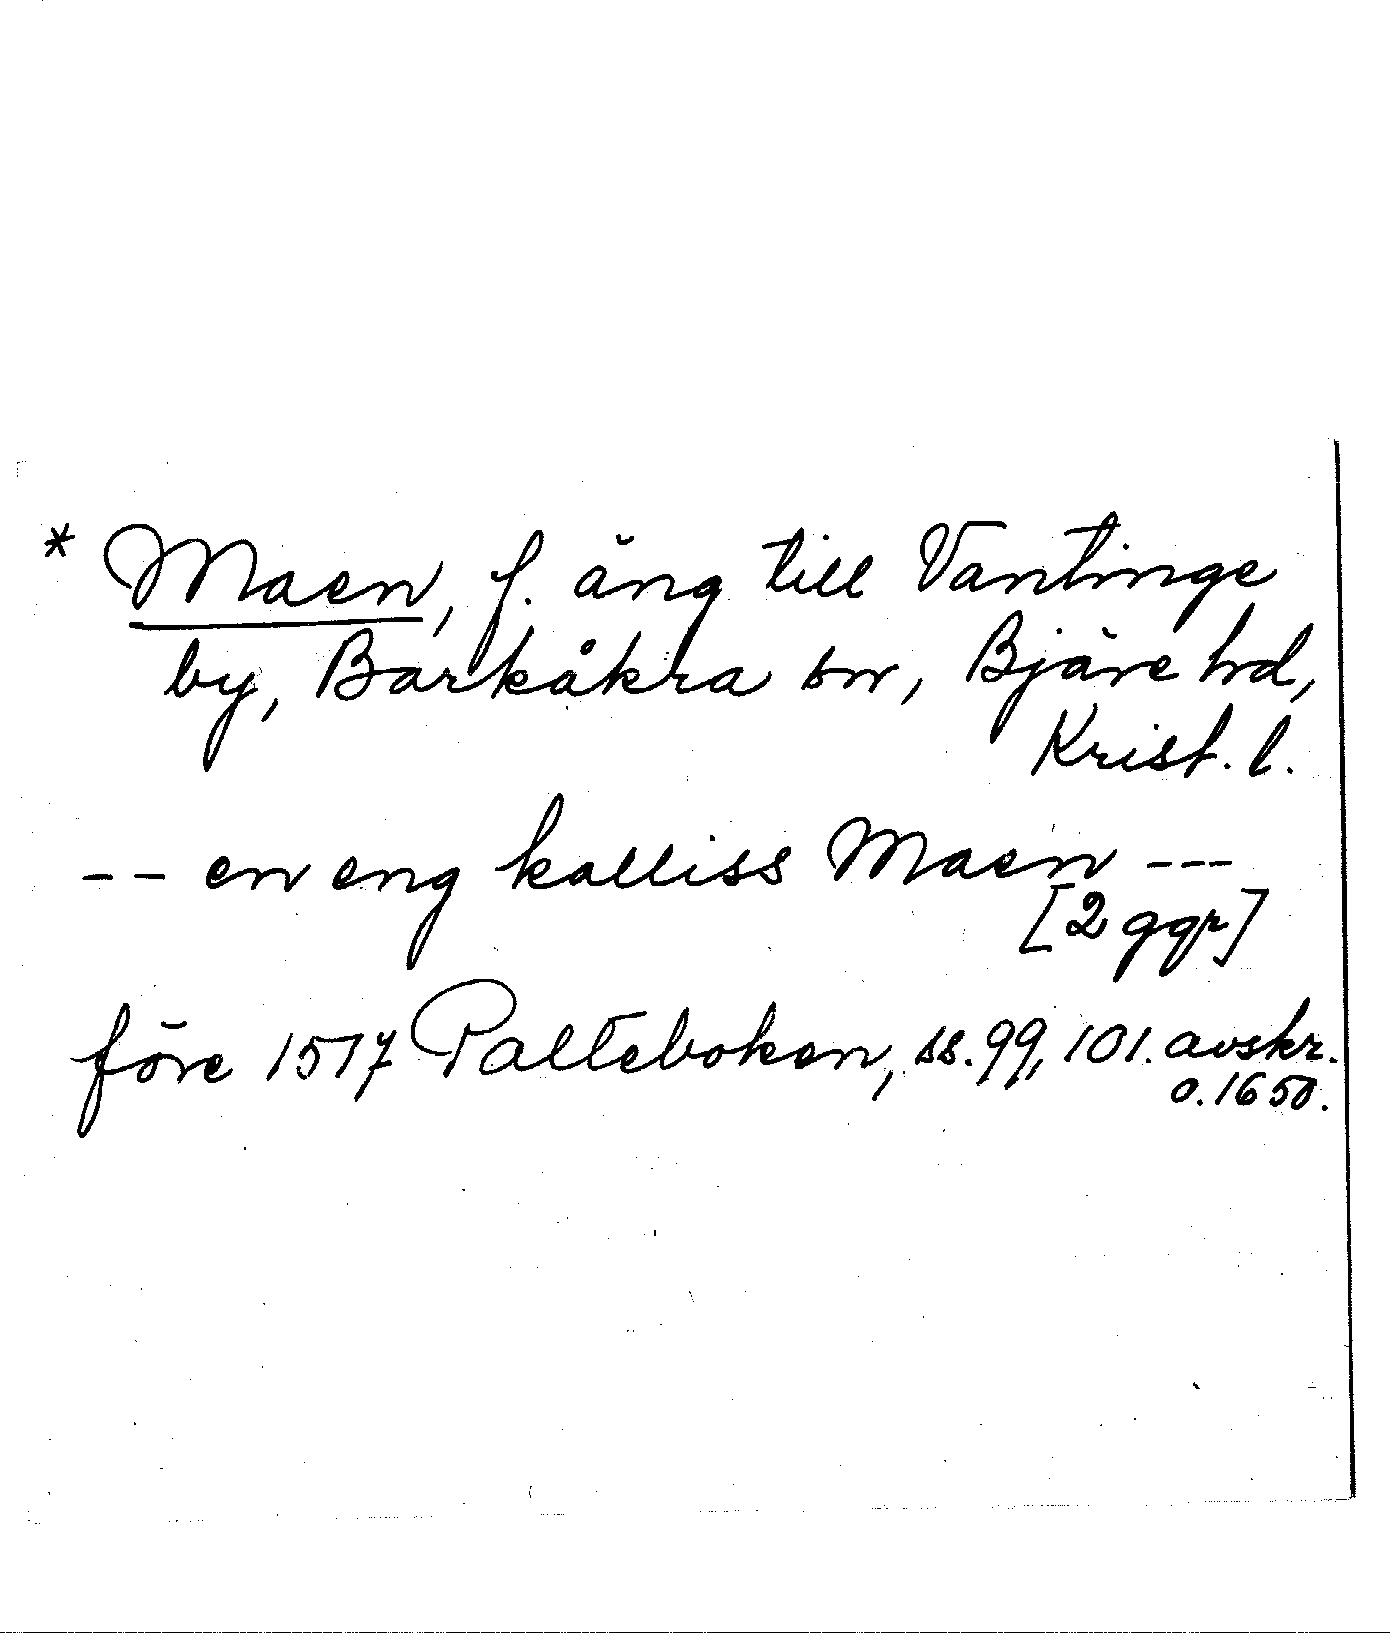 * Maen, f. äng till Vantinge
by, Barkåkra sn, Bjäre hd,
Krist. l.
-- en eng kalliss Maen ---
[2 ggr]
före 1517 Palteboken, ss. 99, 101. avskr.
o. 1650.